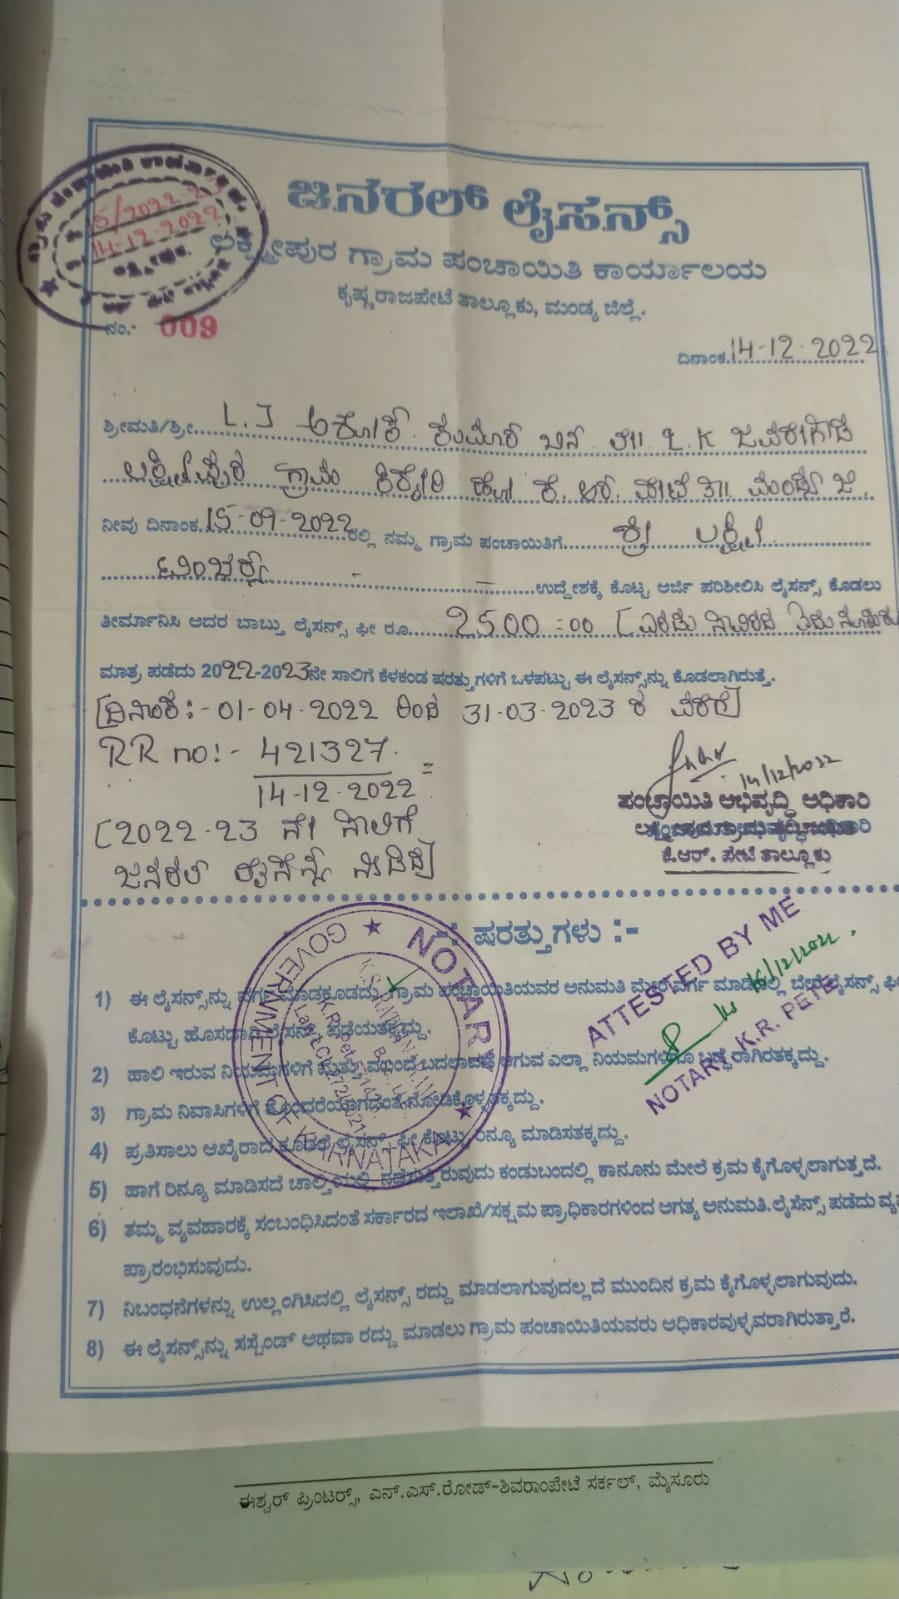 5/2022-23
14-12-2022
ಜನರಲ್ ಲೈಸನ್ಸ್
ಲಕ್ಷ್ಮೀಪುರ ಗ್ರಾಮ ಪಂಚಾಯಿತಿ ಕಾರ್ಯಾಲಯ
ಕೃಷ್ಣರಾಜಪೇಟೆ ತಾಲ್ಲೂಕು, ಮಂಡ್ಯ ಜಿಲ್ಲೆ.
ನಂ.- 009
ದಿನಾಂಕ.14-12-2022
ಶ್ರೀಮತಿ/ಶ್ರೀ. L.J ಅಶೋಕ್ ಕುಮಾರ್ ಬಿನ್ ಲೇ|| L K ಜವರೇಗೌಡ
ಲಕ್ಷ್ಮೀಪುರ ಗ್ರಾಮ ಕಿಕ್ಕೇರಿ ಹೋ ಕೆ.ಆರ್.ಪೇಟೆ ತಾ|| ಮಂಡ್ಯ ಜಿ.
ನೀವು ದಿನಾಂಕ.15-09-2022 ರಲ್ಲಿ ನಮ್ಮ ಗ್ರಾಮ ಪಂಚಾಯಿತಿಗೆ ಶ್ರೀ ಲಕ್ಷ್ಮೀ
ಟಿಂಬರ್ಸ್ - - ಉದ್ದೇಶಕ್ಕೆ ಕೊಟ್ಟ ಅರ್ಜಿ ಪರಿಶೀಲಿಸಿ ಲೈಸನ್ಸ್ ಕೊಡಲು
ತೀರ್ಮಾನಿಸಿ ಅದರ ಬಾಬ್ತು ಲೈಸನ್ಸ್ ಫೀ ರೂ. 2500=00 [ಎರಡು ಸಾವಿರದ ಐದು ನೂರು
ಮಾತ್ರ ಪಡೆದು 2022-2023ನೇ ಸಾಲಿಗೆ ಕೆಳಕಂಡ ಷರತ್ತುಗಳಿಗೆ ಒಳಪಟ್ಟು ಈ ಲೈಸನ್ಸ್‌ನ್ನು ಕೊಡಲಾಗಿರುತ್ತೆ.
[ದಿನಾಂಕ:-01-04-2022 ರಿಂದ 31-03-2023 ರ ವರೆಗೆ]
RR no:- 421327
14-12-2022 =
14/12/2022
[2022-23 ನೇ ಸಾಲಿಗೆ
ಜನರಲ್ ಲೈಸೆನ್ಸ್ ನೀಡಿದೆ]
ಪಂಚಾಯಿತಿ ಅಭಿವೃದ್ಧಿ ಅಧಿಕಾರಿ
ಕೆ.ಆರ್. ಪೇಟೆ ತಾಲ್ಲೂಕು
-: ಷರತ್ತುಗಳು :-
1) ಈ ಲೈಸನ್ಸ್‌ನ್ನು ವರ್ಗ ಮಾಡಕೂಡದು. ಗ್ರಾಮ ಪಂಚಾಯಿತಿಯವರ ಅನುಮತಿ ಮೇರೆ ವರ್ಗ ಮಾಡಿದಲ್ಲಿ ಬೇರೆ ಲೈಸನ್ಸ್ ಫೀ
ಕೊಟ್ಟು ಹೊಸದಾಗಿ ಲೈಸನ್ಸ್ ಪಡೆಯತಕ್ಕದ್ದು.
2) ಹಾಲಿ ಇರುವ ನಿಯಮಗಳಿಗೆ ಮತ್ತು ಮುಂದೆ ಬದಲಾವಣೆ ಆಗುವ ಎಲ್ಲಾ ನಿಯಮಗಳಿಗೂ ಬದ್ಧರಾಗಿರತಕ್ಕದ್ದು.
3) ಗ್ರಾಮ ನಿವಾಸಿಗಳಿಗೆ ತೊಂದರೆಯಾಗದಂತೆ ನೋಡಿಕೊಳ್ಳತಕ್ಕದ್ದು.
4) ಪ್ರತಿಸಾಲು ಆಖೈರಾದ ಕೂಡಲೆ ಲೈಸನ್ಸ್ ಫೀ ಕೊಟ್ಟು ರಿನ್ಯೂ ಮಾಡಿಸತಕ್ಕದ್ದು.
5) ಹಾಗೆ ರಿನ್ಯೂ ಮಾಡಿಸದೆ ಚಾಲ್ತಿಯಲ್ಲಿ ನಡೆಸುತ್ತಿರುವುದು ಕಂಡುಬಂದಲ್ಲಿ ಕಾನೂನು ಮೇಲೆ ಕ್ರಮ ಕೈಗೊಳ್ಳಲಾಗುತ್ತದೆ.
6) ತಮ್ಮ ವ್ಯವಹಾರಕ್ಕೆ ಸಂಬಂಧಿಸಿದಂತೆ ಸರ್ಕಾರದ ಇಲಾಖೆ/ಸಕ್ಷಮ ಪ್ರಾಧಿಕಾರಗಳಿಂದ ಅಗತ್ಯ ಅನುಮತಿ.ಲೈಸನ್ಸ್ ಪಡೆದು
ಪ್ರಾರಂಭಿಸುವುದು.
7) ನಿಬಂಧನೆಗಳನ್ನು ಉಲ್ಲಂಗಿಸಿದಲ್ಲಿ ಲೈಸನ್ಸ್ ರದ್ದು ಮಾಡಲಾಗುವುದಲ್ಲದೆ ಮುಂದಿನ ಕ್ರಮ ಕೈಗೊಳ್ಳಲಾಗುವುದು.
8) ಈ ಲೈಸನ್ಸ್‌ನ್ನು ಸಸ್ಪೆಂಡ್ ಅಥವಾ ರದ್ದು ಮಾಡಲು ಗ್ರಾಮ ಪಂಚಾಯಿತಿಯವರು ಅಧಿಕಾರವುಳ್ಳವರಾಗಿರುತ್ತಾರೆ.
NOTARY
GOVERNMENT OF KARNATAKA
ATTESTED BY ME
16/12/2022.
NOTARY K.R. PETE
ಈಶ್ವರ್ ಪ್ರಿಂಟರ್ಸ್, ಎನ್.ಎಸ್.ರೋಡ್-ಶಿವರಾಂಪೇಟೆ ಸರ್ಕಲ್, ಮೈಸೂರು